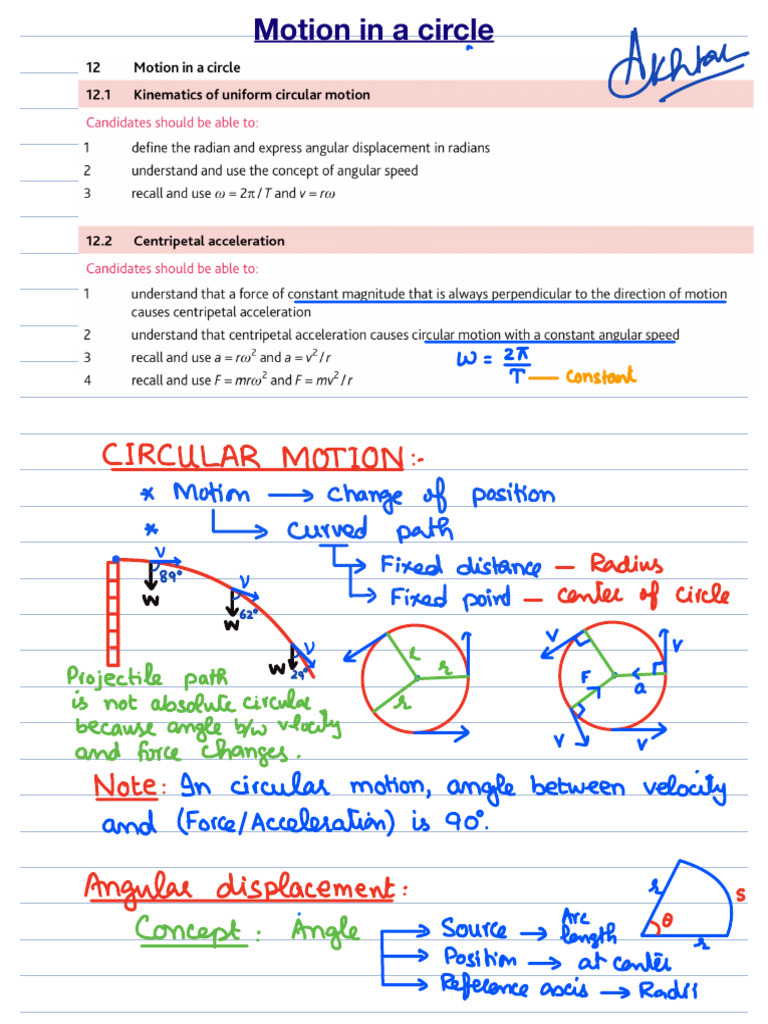 Motion in a circle
Akhtar
12 Motion in a circle
12.1 Kinematics of uniform circular motion
Candidates should be able to:
1 define the radian and express angular displacement in radians
2 understand and use the concept of angular speed
3 recall and use ω = 2π / T and v = rω
12.2 Centripetal acceleration
Candidates should be able to:
1 understand that a force of constant magnitude that is always perpendicular to the direction of motion
causes centripetal acceleration
2 understand that centripetal acceleration causes circular motion with a constant angular speed
3 recall and use a = rω² and a = v² / r
4 recall and use F = mrω² and F = mv² / r
ω = 2π/T — constant
CIRCULAR MOTION :-
* Motion → change of position
* → curved path
→ Fixed distance — Radius
→ Fixed point — center of circle
V
89°
W
V
62°
W
V
29°
W
Projectile path
is not absolute circular
because angle b/w velocity
and force changes.
r
r
r
V
V
F
a
V
V
Note: In circular motion, angle between velocity
and (Force/Acceleration) is 90°.
Angular displacement:
Concept: Angle
→ Source → Arc length
→ Position → at center
→ Reference axis → Radii
r
θ
r
S